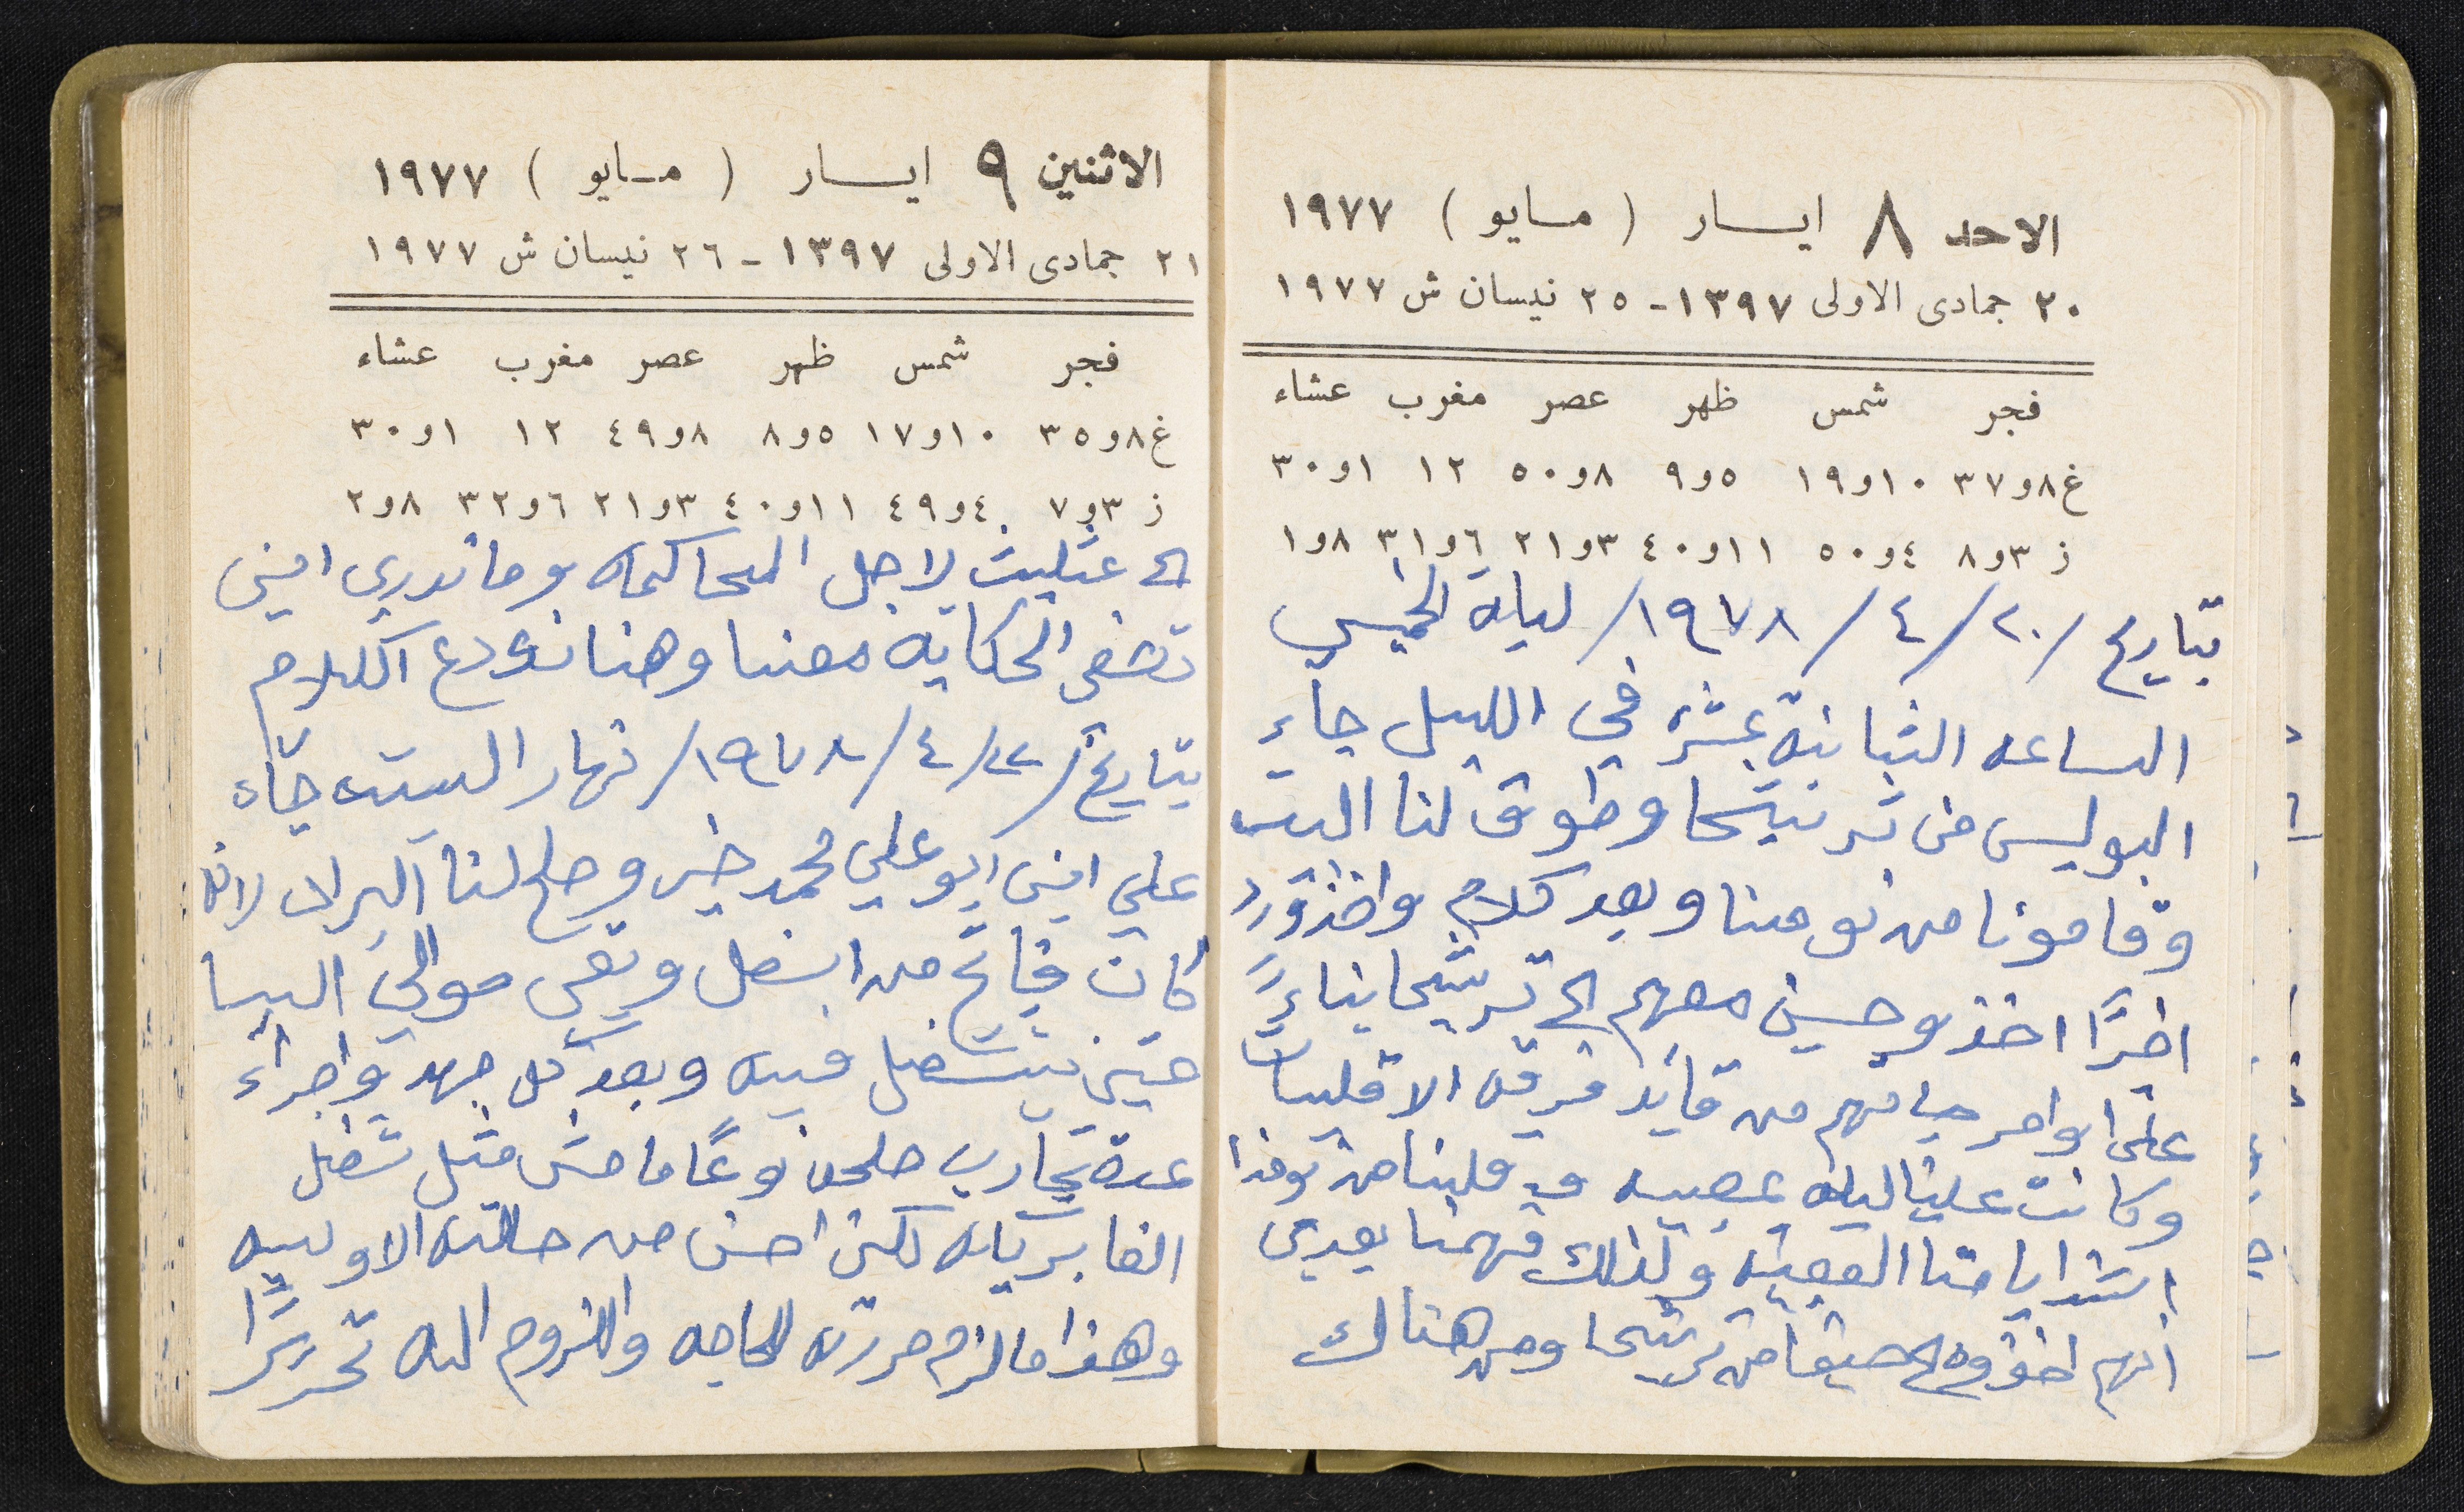 الاحد ٨ ايسار ( مسايو ) ١٩٧٧
٢٠ جمادى الاولى ١٣٩٧ - ٢٥ نيسان ش ١٩٧٧
فجر شمس ظهر عصر مغرب عشاء
غ ٨و٣٧ ١٠و١٩ ٥و٩ ٨و٥٠ ١٢ ١و٣٠
ز ٣و٨ ٤و٥٠ ١١و٤٠ ٣و٢١ ٦و٣١ ٨و١
بتاريخ /٢٠/٤/١٩٧٨/ ليله الخميس
الساعه الثانيه عشره في الليل جاء
البوليس من ترشيحا وطوق لنا البيت
وقامونا من نومنا وبعد كلام واخذ ورد
اخرًا اخذو حسين معهم الى ترشيحا بناءً
على اوامر جياتهم من قائد فرقه الاقليات
وكانت علينا ليله عصيبه في قلينا من
اشد ايامنا العصيبه وكذلك فهمنا بعدين
انهم اخذوه الى حيفا من ترشيحا ومن هناك
الاثنين ٩ ايسار ( مسايو ) ١٩٧٧
٢١ جمادى الاولى ١٣٩٧ - ٢٦ نيسان ش ١٩٧٧
فجر شمس ظهر عصر مغرب عشاء
غ ٨و٣٥ ١٠و١٧ ٥و٨ ٨و٤٩ ١٢ ١و٣٠
ز ٣و٧ ٤و٤٩ ١١و٤٠ ٣و٢١ ٦و٣٢ ٨و٢
الى عتليت لاجل المحاكمه وما ندري اميتى
تصفى الحكايه معنا وهنا نودع الكلام
بتاريخ /٢٢/٤/١٩٧٨/ نهار السبت جاء
علي ابن ابو علي محمد خير وصلح لنا البراد لانه
كان من وبقي حوالي
حتى بيشتغل فيه وبعد كل جهد واجراء
عدة تجارب صلحه نوعًا ما مش مثل شغل
الفابريكه لكن احسن من حالته الاوليه
وهذا ما لزم حررته للحاجه والزوم اليه تحريرًا